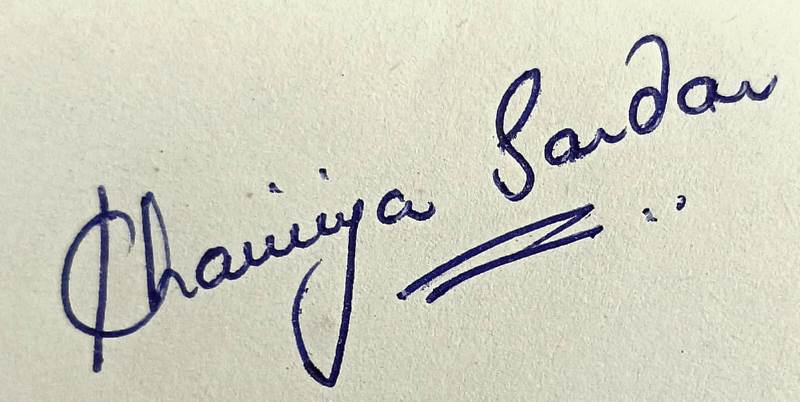 Chainiya Sardar